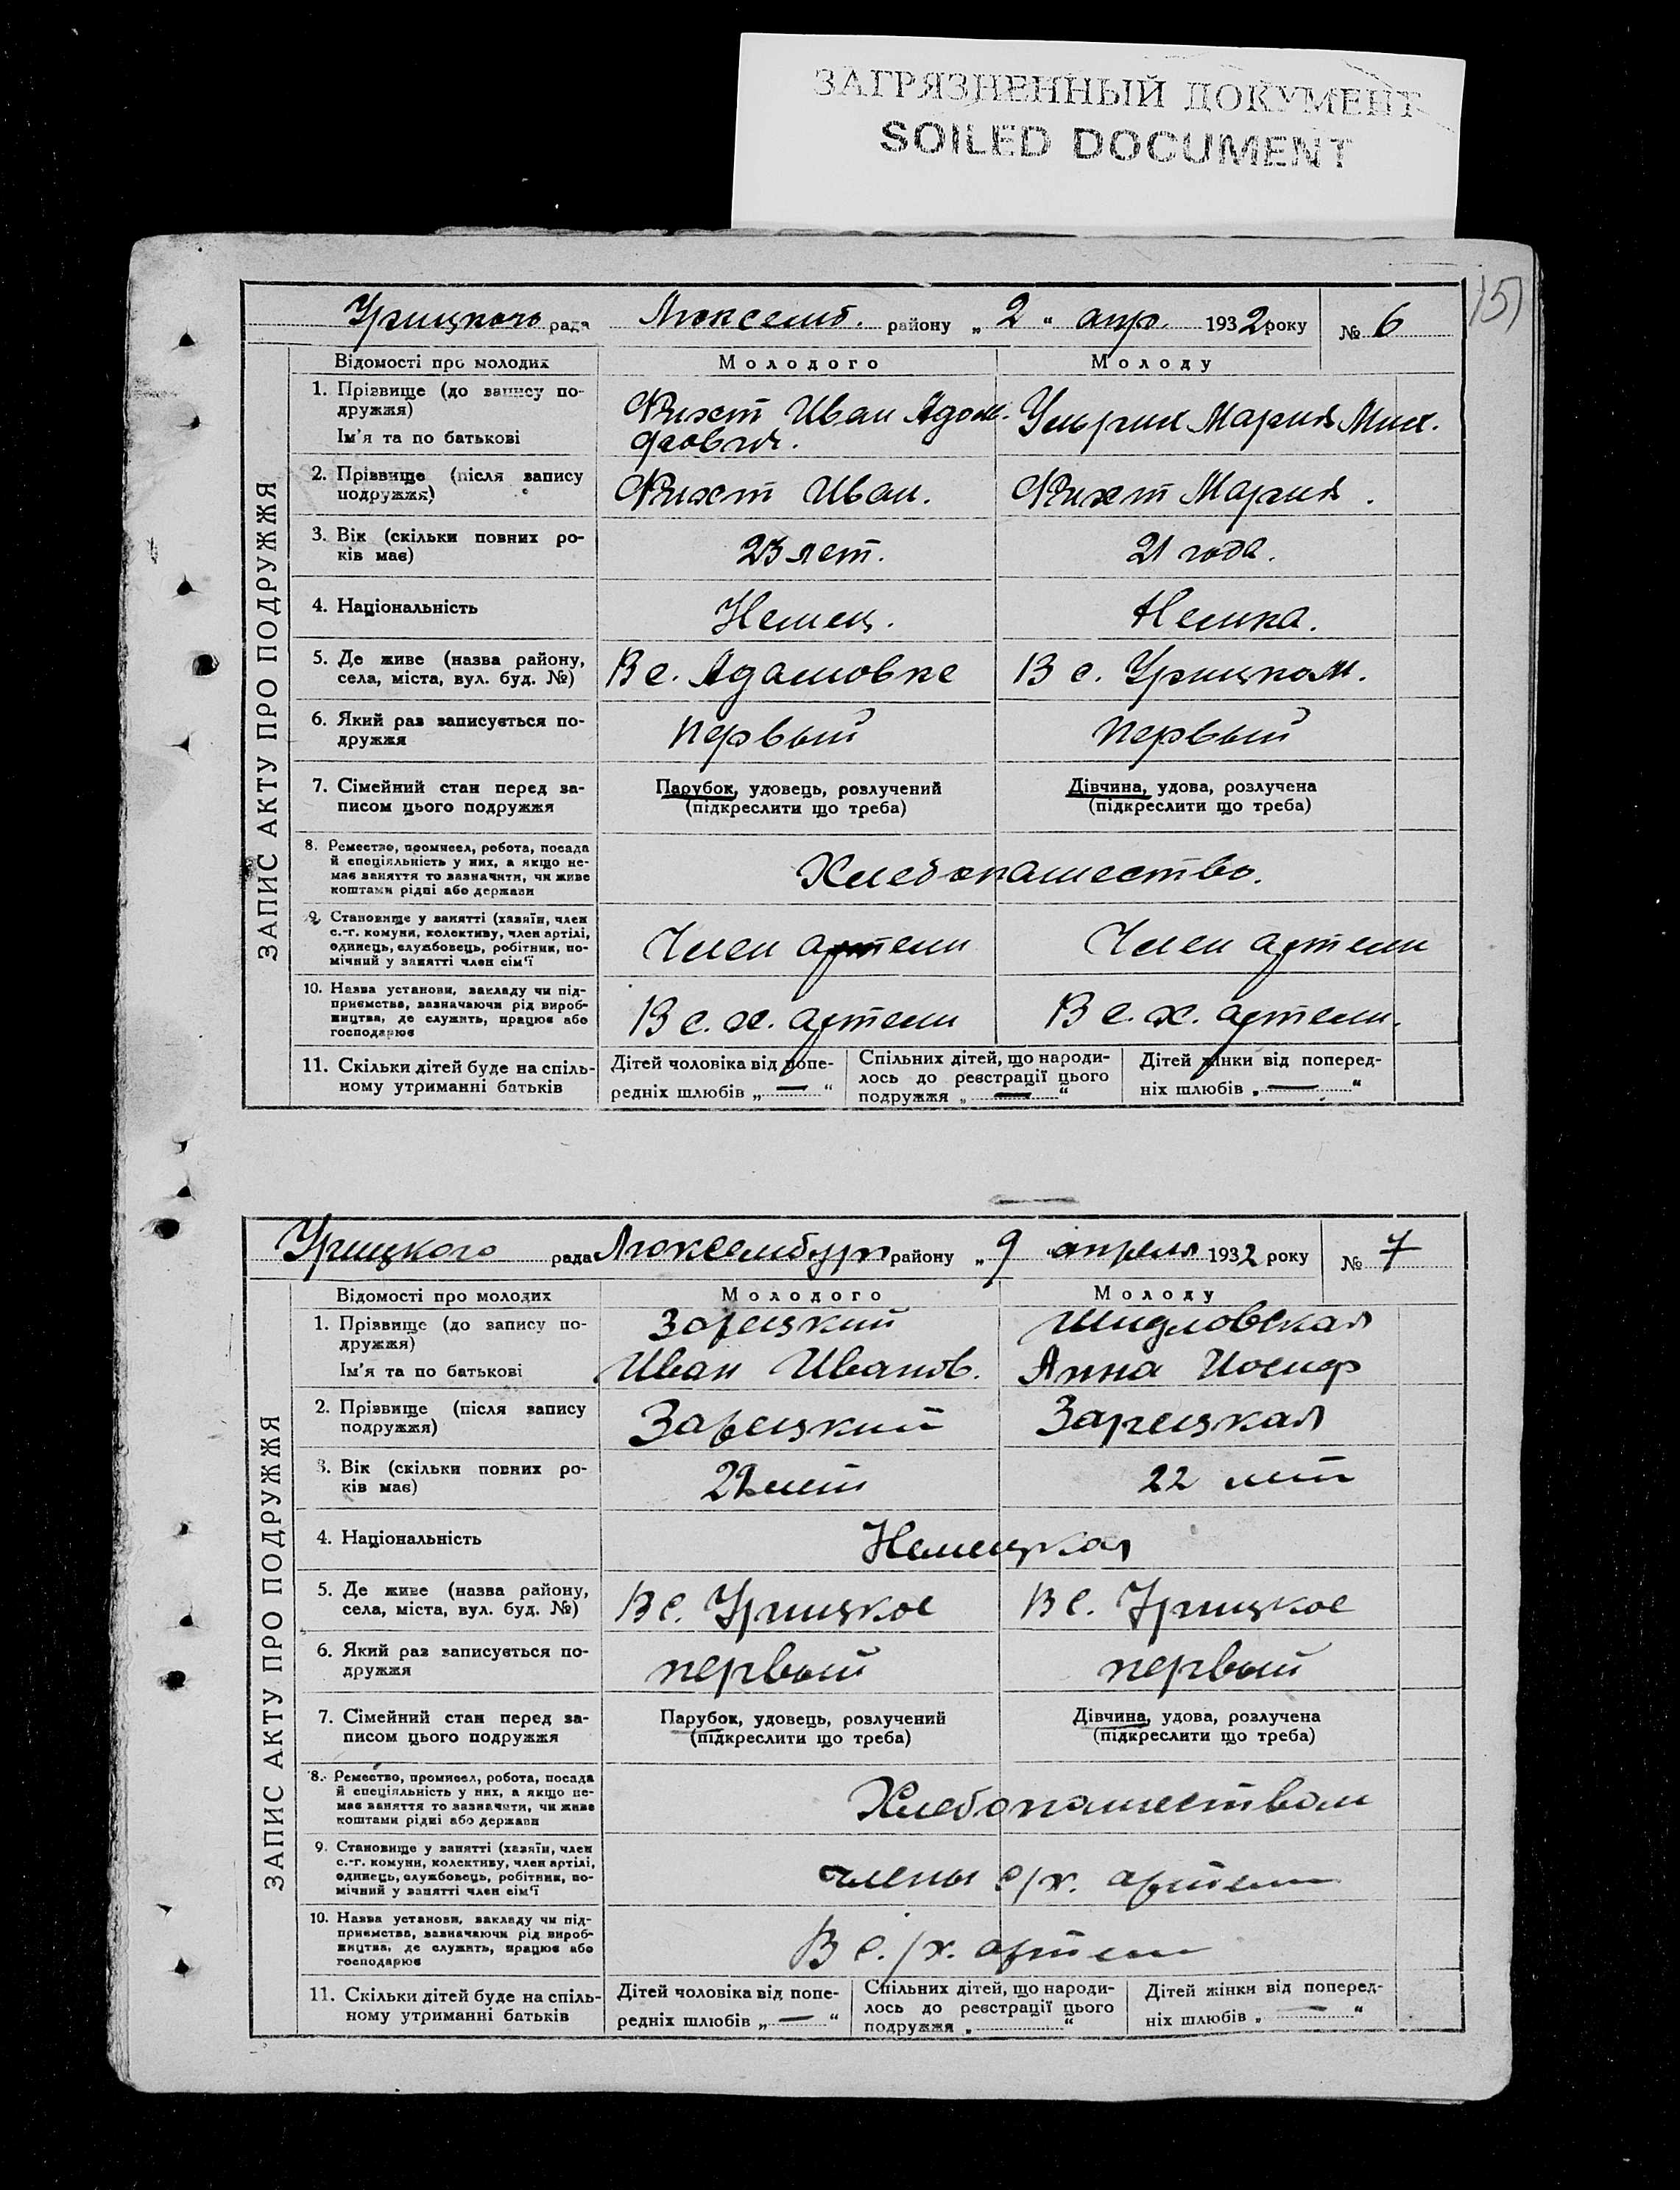 ЗАГРЯЗНЕННЫЙ ДОКУМЕНТ
SOILED DOCUMENT
151
Урицкого рада Люксемб. району „ 2 “ апр. 1932 року № 6
ЗАПИС АКТУ ПРО ПОДРУЖЖЯ
Відомості про молодих Молодого Молоду
1. Прізвище (до запису по-
дружжя)
Ім'я та по батькові
Фихт Иван Адоль-
фович.
Ульрих Мария Мих.
2. Прізвище (після запису
подружжя)
Фихт Иван.
Фихт Мария.
3. Вік (скільки повних ро-
ків має)
23 лет.
21 года.
4. Національність
Немец.
Немка.
5. Де живе (назва району,
села, міста, вул. буд. №)
В с. Адамовке
В с. Урицком.
6. Який раз записується по-
дружжя
первый
первый
7. Сімейний стан перед за-
писом цього подружжя
Парубок, удовець, розлучений
(підкреслити що треба)
Дівчина, удова, розлучена
(підкреслити що треба)
8. Ремество, промисел, робота, посада
й спеціяльність у них, а якщо не-
має заняття то зазначити, чи живе
коштами рідні або держави
Хлебопашество.
9. Становище у занятті (хазяїн, член
с.-г. комуни, колективу, член артілі,
одинець, службовець, робітник, по-
мічний у занятті член сім'ї
Член артели
Член артели
10. Назва установи, закладу чи під-
приємства, зазначаючи рід вироб-
ництва, де служить, працює або
господарює
В с. х. артели
В с. х. артели.
11. Скільки дітей буде на спіль-
ному утриманні батьків
Дітей чоловіка від попе-
редніх шлюбів „ — “
Спільних дітей, що народи-
лось до реєстрації цього
подружжя „ — “
Дітей жінки від поперед-
ніх шлюбів „ — “
Урицкого рада Люксембург району „ 9 “ апреля 1932 року № 7
ЗАПИС АКТУ ПРО ПОДРУЖЖЯ
Відомості про молодих Молодого Молоду
1. Прізвище (до запису по-
дружжя)
Ім'я та по батькові
Зарецкий
Иван Иванов.
Шидловская
Анна Иосиф
2. Прізвище (після запису
подружжя)
Зарецкий
Зарецкая
3. Вік (скільки повних ро-
ків має)
лет
22 лет
4. Національність
Немецкая
5. Де живе (назва району,
села, міста, вул. буд. №)
В с. Урицкое
В с. Урицкое
6. Який раз записується по-
дружжя
первый
первый
7. Сімейний стан перед за-
писом цього подружжя
Парубок, удовець, розлучений
(підкреслити що треба)
Дівчина, удова, розлучена
(підкреслити що треба)
8. Ремество, промисел, робота, посада
й спеціяльність у них, а якщо не-
має заняття то зазначити, чи живе
коштами рідні або держави
Хлебопашеством
9. Становище у занятті (хазяїн, член
с.-г. комуни, колективу, член артілі,
одинець, службовець, робітник, по-
мічний у занятті член сім'ї
члены с/х. артели
10. Назва установи, закладу чи під-
приємства, зазначаючи рід вироб-
ництва, де служить, працює або
господарює
В с./х. артели
11. Скільки дітей буде на спіль-
ному утриманні батьків
Дітей чоловіка від попе-
редніх шлюбів „ — “
Спільних дітей, що народи-
лось до реєстрації цього
подружжя „ “
Дітей жінки від поперед-
ніх шлюбів „ — “